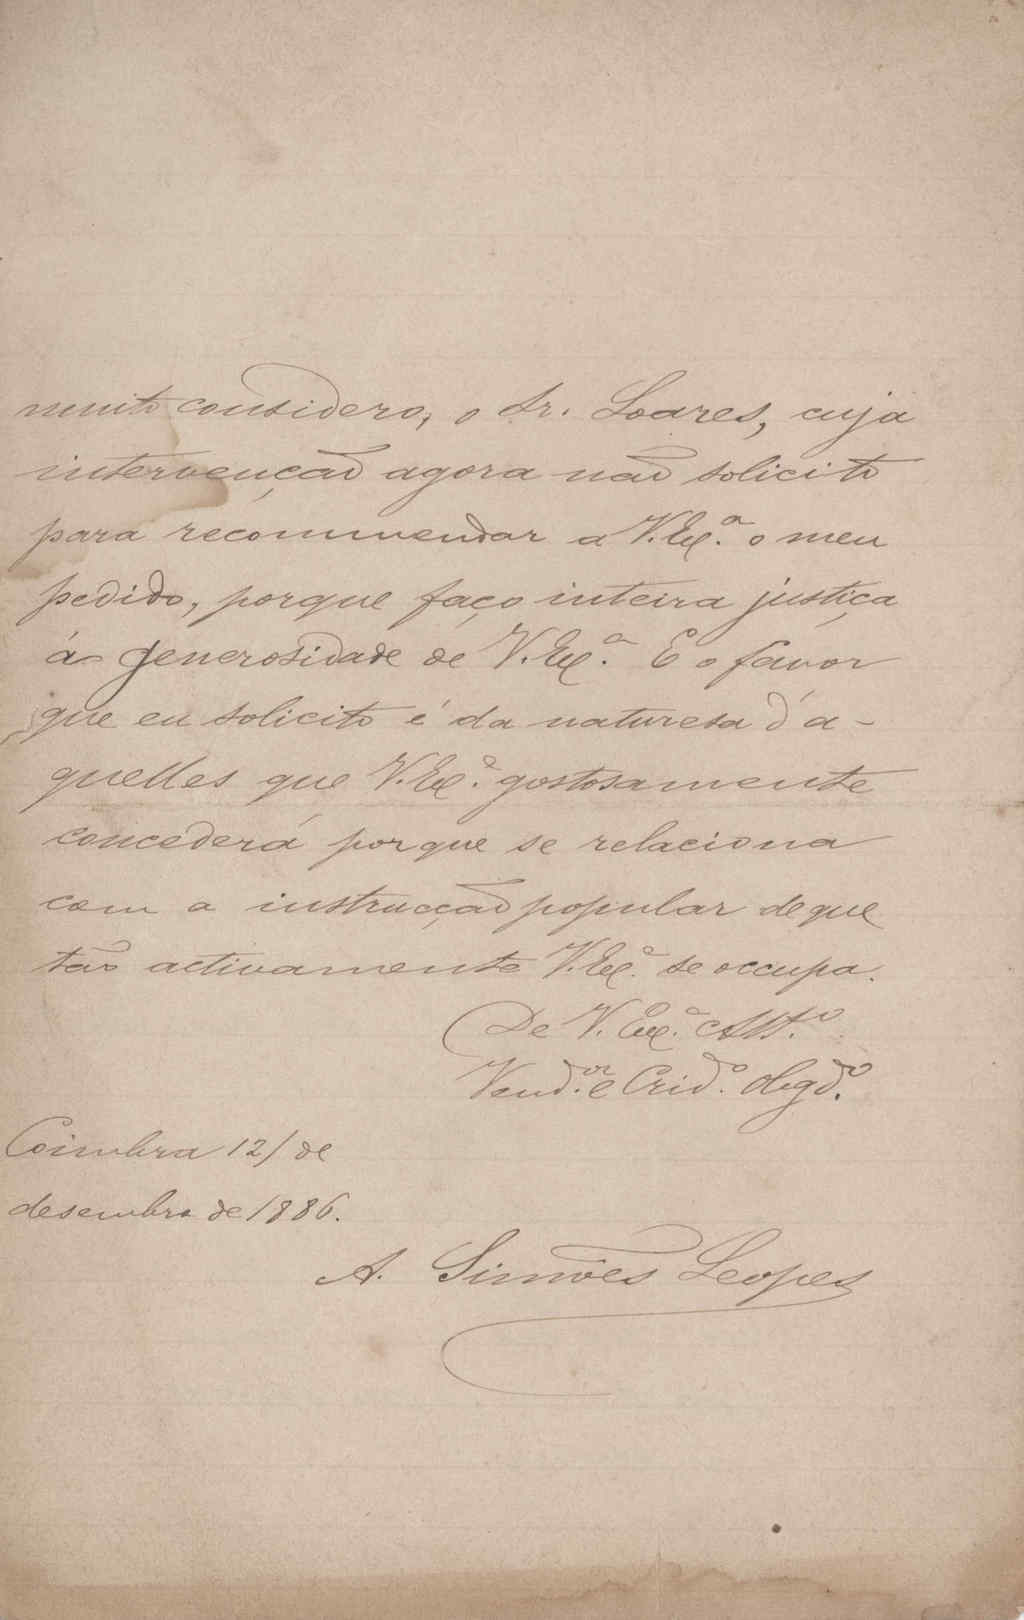 muito considero, o Sr. Soares, cuja
intervenção agora não solicito
para recommendar a V. Ex.ª o meu
pedido, porque faço inteira justiça
á generosidade de V. Ex.ª. E o favor
que eu solicito é da naturesa d'a-
quelles que V. Ex.ª gostosamente
concederá porque se relaciona
com a instrucção popular de que
tão activamente V. Ex.ª se occupa.
De V. Ex.ª Att.º
Vend.or e Crid.º obgd.º
Coimbra 12/ de
desembro de 1886.
A. Simões Lopes